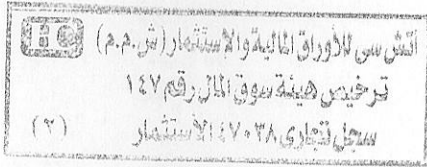 اتش سي للأوراق المالية والإستثمار (ش.م.م) HC
ترخيص هيئة سوق المال رقم ١٤٧
سجل تجارى ٤٧٠٣٨ الاستثمار (٢)